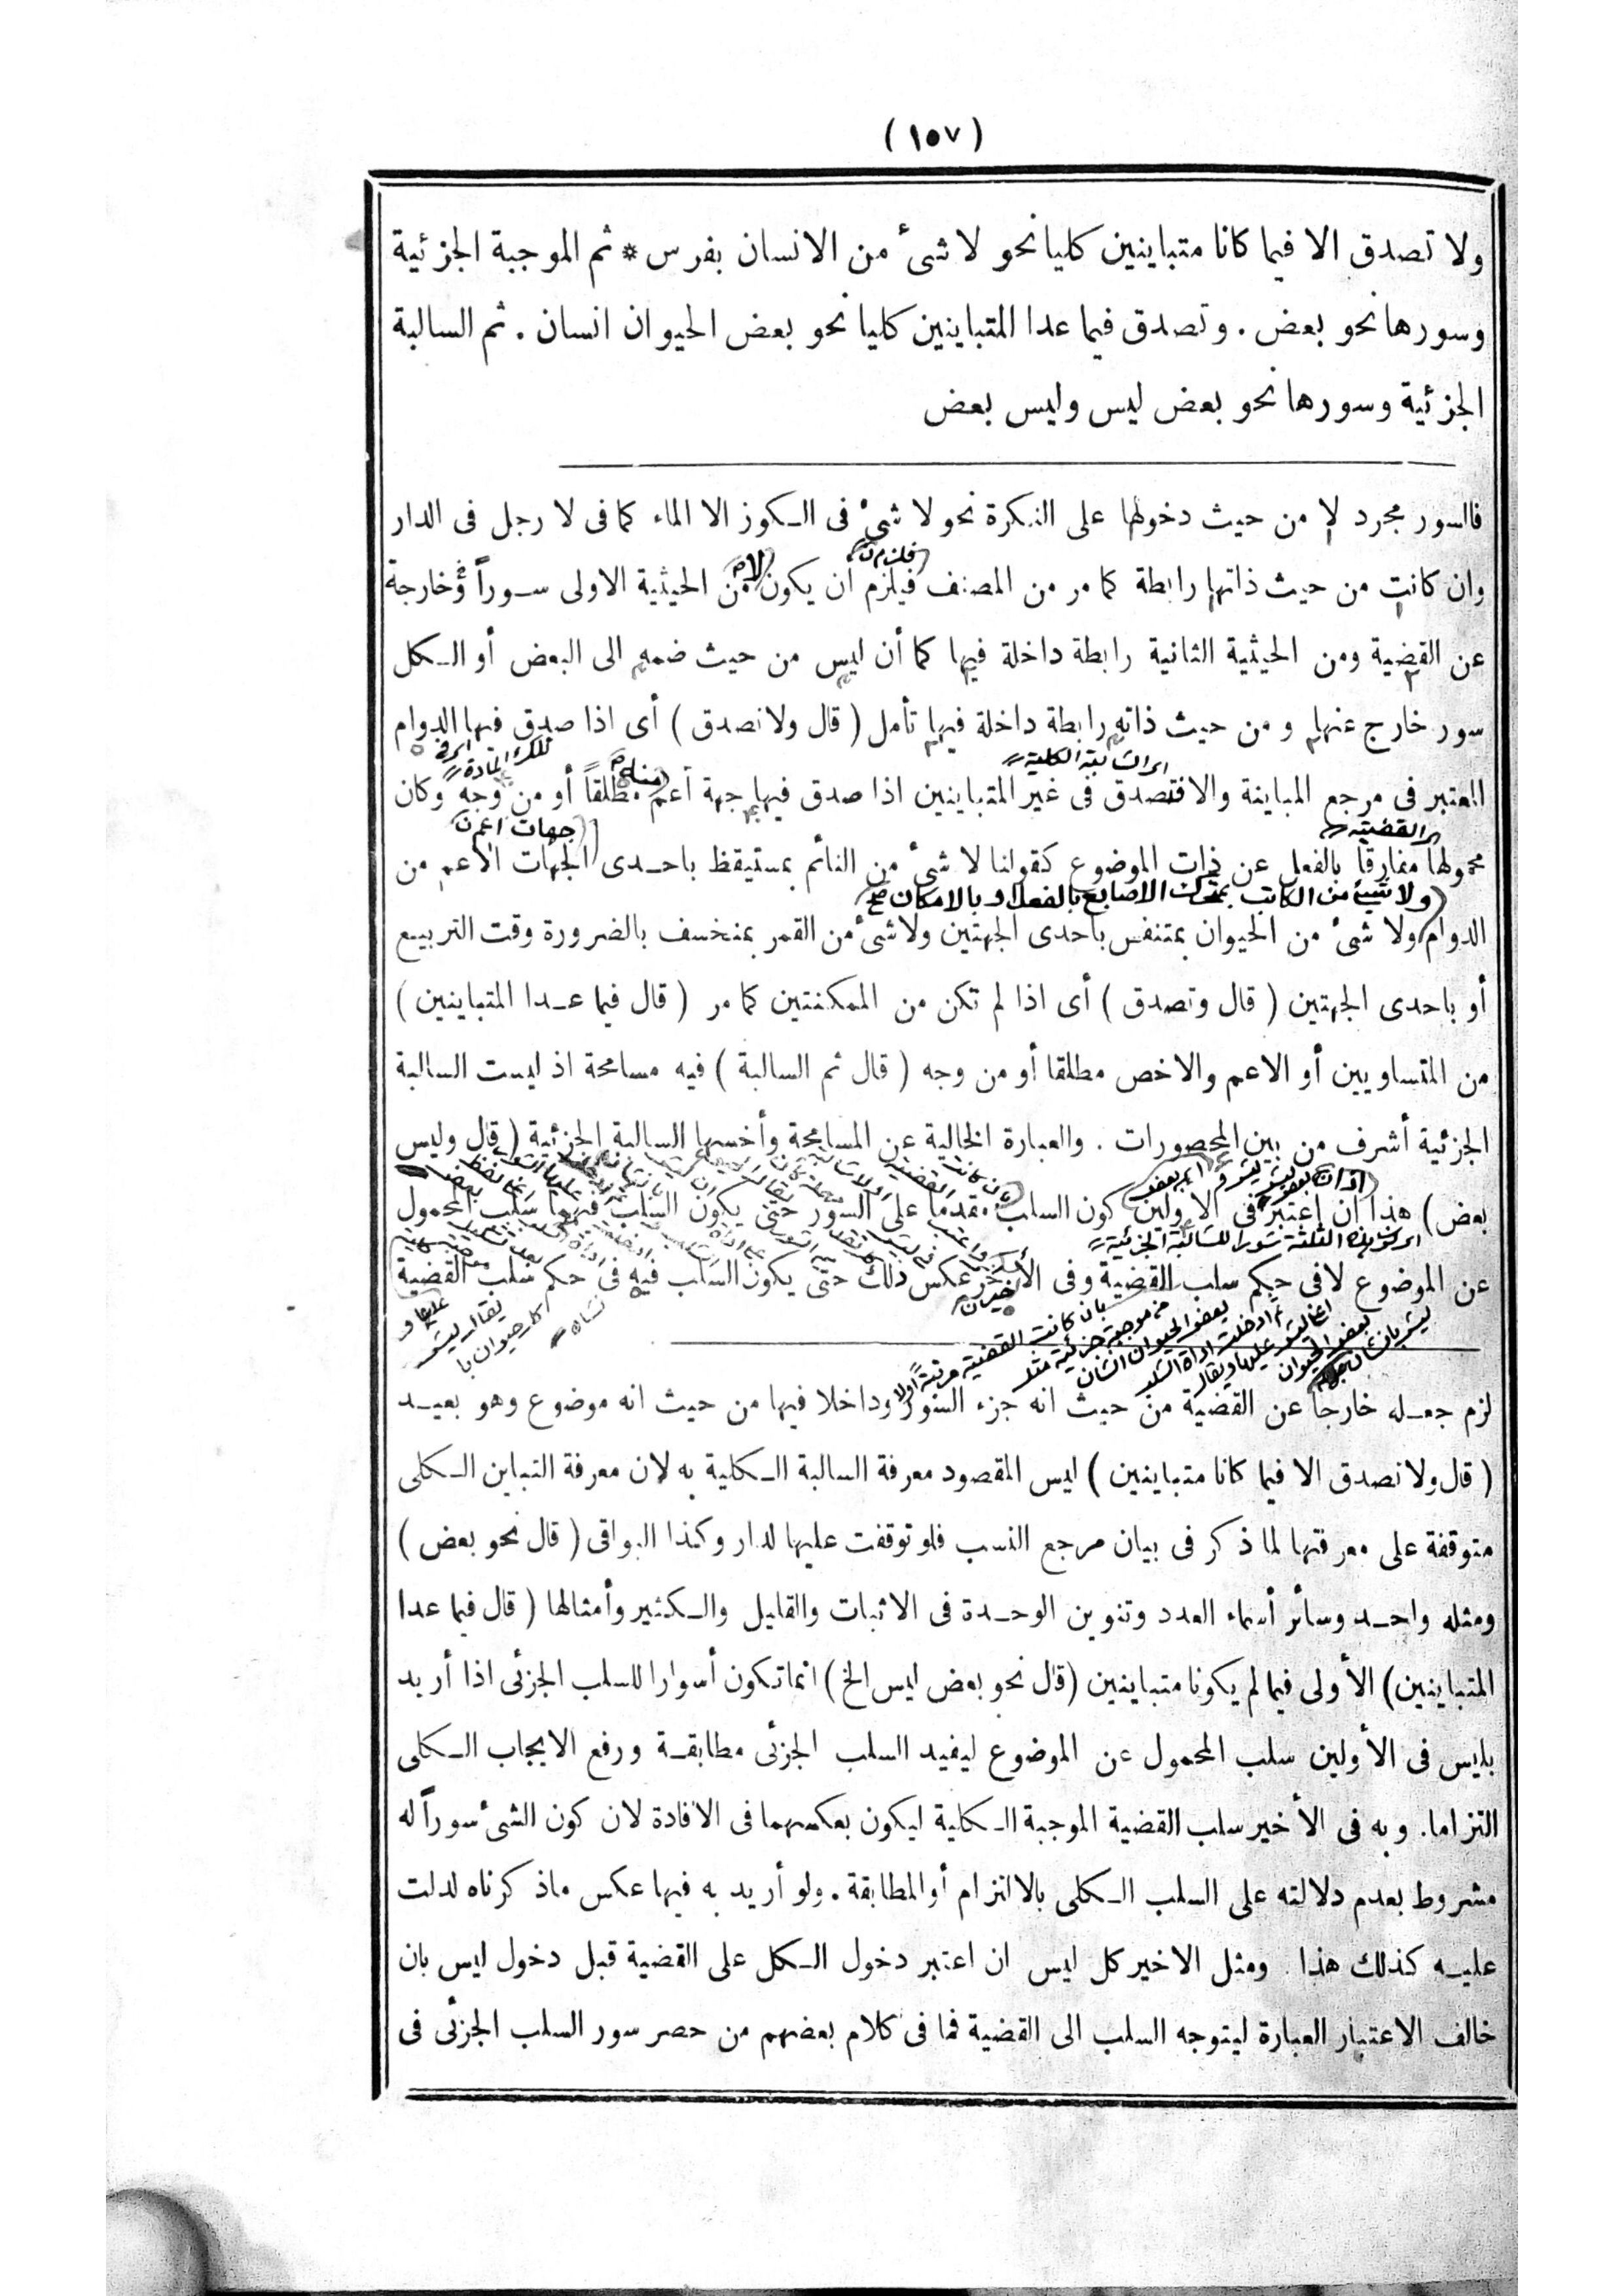 ( ١٥٧ )
ولا تصدق الا فيما كانا متباينين كليا نحو لا شئ من الانسان بفرس * ثم الموجبة الجزئية
وسورها نحو بعض . وتصدق فيما عدا المتباينين كليا نحو بعض الحيوان انسان . ثم السالبة
الجزئية وسورها نحو بعض ليس وليس بعض
فالسور مجرد لا من حيث دخولها على النكرة نحو لا شئ فى الكوز الا الماء كما فى لا رجل فى الدار
وان كانت من حيث ذاتها رابطة كما مر من المصنف فيلزم ان يكون من الحيثية الاولى سوراً وخارجة
عن القضية ومن الحيثية الثانية رابطة داخلة فيها كما أن ليس من حيث ضمه الى البعض أو الكل
سور خارج عنها ومن حيث ذاته رابطة داخلة فيها تأمل ( قال ولا تصدق ) أى اذا صدق فيها الدوام
اى السالبة الكلية
المعتبر فى مرجع المباينة والا فتصدق فى غير المتباينين اذا صدق فيها جهة أعم مطلقاً أو من وجه وكان
اى القضية
جهات اعم
محمولها مفارقا بالفعل عن ذات الموضوع كقولنا لا شئ من النائم بمستيقظ باحدى الجهات الاعم من
ولا شئ من الكاتب بمتحرك الاصابع بالفعل او بالامكان صح
الدوام ولا شئ من الحيوان بمتنفس باحدى الجهتين ولا شئ من القمر بمنخسف بالضرورة وقت التربيع
أو باحدى الجهتين ( قال وتصدق ) أى اذا لم تكن من الممكنتين كما مر ( قال فيما عدا المتباينين )
من المتساويين أو الاعم والاخص مطلقا أو من وجه ( قال ثم السالبة ) فيه مسامحة اذ ليست السالبة
الجزئية أشرف من بين المحصورات . والعبارة الخالية عن المسامحة وأخسها السالبة الجزئية ( قال وليس
بعض ) هذا ان اعتبر فى الاولين كون السلب مقدما على السور حتى يكون السلب فيهما سلب المحمول
عن الموضوع لا فى حكم سلب القضية وفى الأخير عكس ذلك حتى يكون السلب فيه فى حكم سلب القضية
لزم جعله خارجا عن القضية من حيث انه جزء السور وداخلا فيها من حيث انه موضوع وهو بعيد
( قال ولا تصدق الا فيما كانا متباينين ) ليس المقصود معرفة السالبة الكلية به لان معرفة التباين الكلى
متوقفة على معرفتها لما ذكر فى بيان مرجع النسب فلو توقفت عليها لدار وكذا البواقى ( قال نحو بعض )
ومثله واحد وسائر أسماء العدد وتنوين الوحدة فى الاثبات والقليل والكثير وأمثالها ( قال فيما عدا
المتباينين ) الأولى فيما لم يكونا متباينين ( قال نحو بعض ليس الخ ) انما تكون أسوارا للسلب الجزئى اذا أريد
بليس فى الأولين سلب المحمول عن الموضوع ليفيد السلب الجزئى مطابقة ورفع الايجاب الكلى
التزاما . وبه فى الأخير سلب القضية الموجبة الكلية ليكون بعكسهما فى الافادة لان كون الشئ سوراً له
مشروط بعدم دلالته على السلب الكلى بالالتزام أو المطابقة . ولو أريد به فيها عكس ما ذكرناه لدلت
عليه كذلك هذا . ومثل الاخير كل ليس ان اعتبر دخول الكل على القضية قبل دخول ليس بان
خالف الاعتبار العبارة ليتوجه السلب الى القضية فما فى كلام بعضهم من حصر سور السلب الجزئى فى